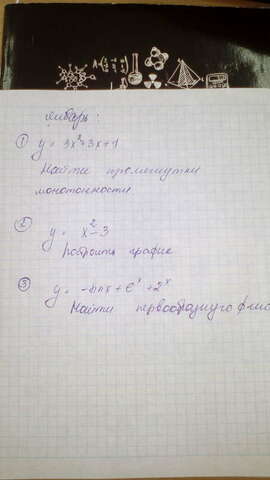 январь:
① y = 3x²+3x+1
Найти промежутки
монотонности
② y = x²-3
Построить график
③ y = -sinx + e^x + 2^x
Найти первообразную